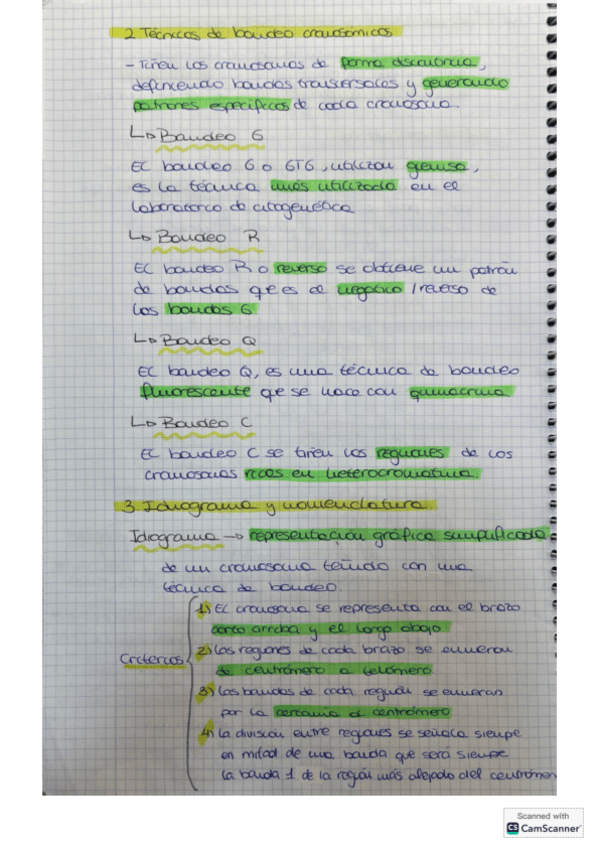 2 Técnicas de bandeo cromosómicos
- Tiñen los cromosomas de forma discontinua,
definiendo bandas transversales y generando
patrones específicos de cada cromosoma.
↳ Bandeo G
El bandeo G o GTG, utilizan giemsa,
es la técnica más utilizada en el
laboratorio de citogenética
↳ Bandeo R
El bandeo R o reverso se obtiene un patrón
de bandas que es el negativo / reverso de
las bandas G
↳ Bandeo Q
El bandeo Q, es una técnica de bandeo
fluorescente que se hace con quinacrina
↳ Bandeo C
El bandeo C se tiñen las regiones de los
cromosomas ricas en heterocromatina
3 Idiograma y nomenclatura
Idiograma → representación gráfica simplificada
de un cromosoma teñido con una
técnica de bandeo.
Criterios
1) El cromosoma se representa con el brazo
corto arriba y el largo abajo
2) Las regiones de cada brazo se enumeran
de centrómero a telómero
3) Las bandas de cada región se enumeran
por la cercanía al centrómero
4) La división entre regiones se señala siempe
en mitad de una banda que será siempe
la banda 1 de la región más alejada del centrómer
Scanned with
CS CamScanner